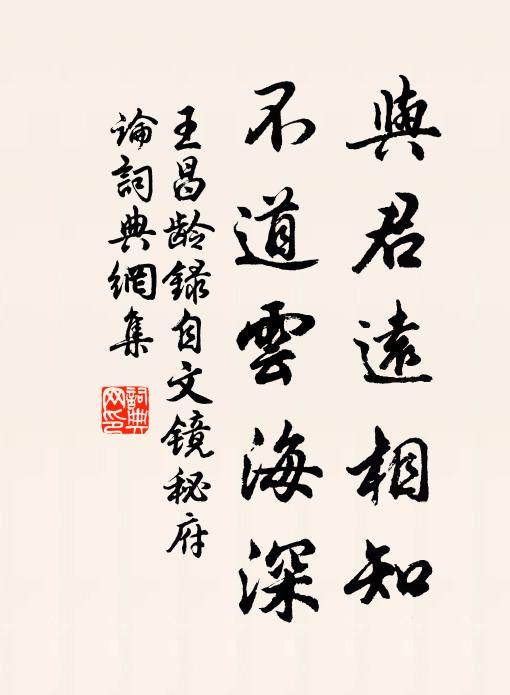 與君遠相知
不道雲海深
王昌龄録自文鏡秘府
論詞典網集
詞典
网印